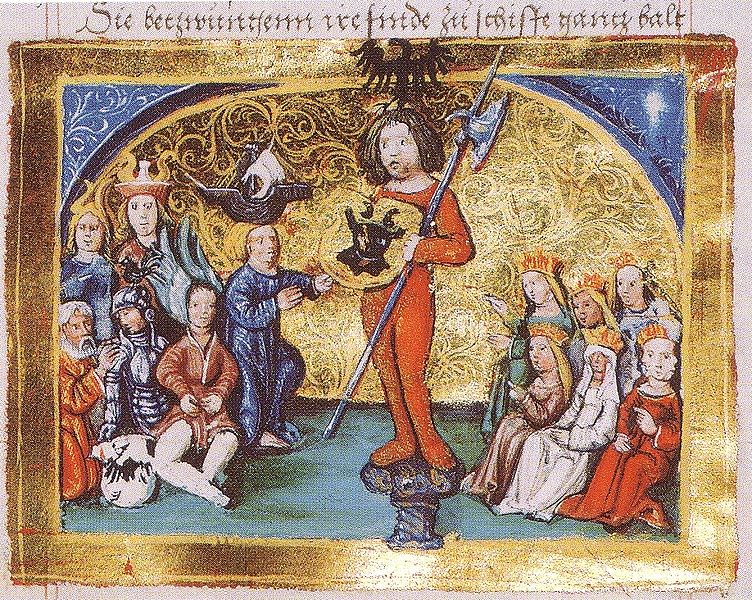 Sie betzwungenn ire feinde zu schiffe gantz balt